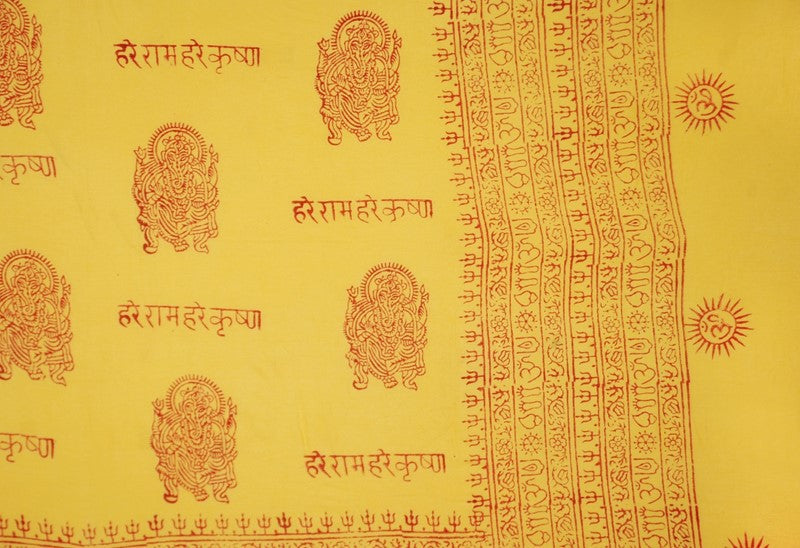 हरे राम हरे कृष्ण
कृष्ण
हरे राम हरे कृष्ण
हरे राम हरे कृष्ण
कृष्ण
हरे राम हरे कृष्ण
ॐ
ॐ